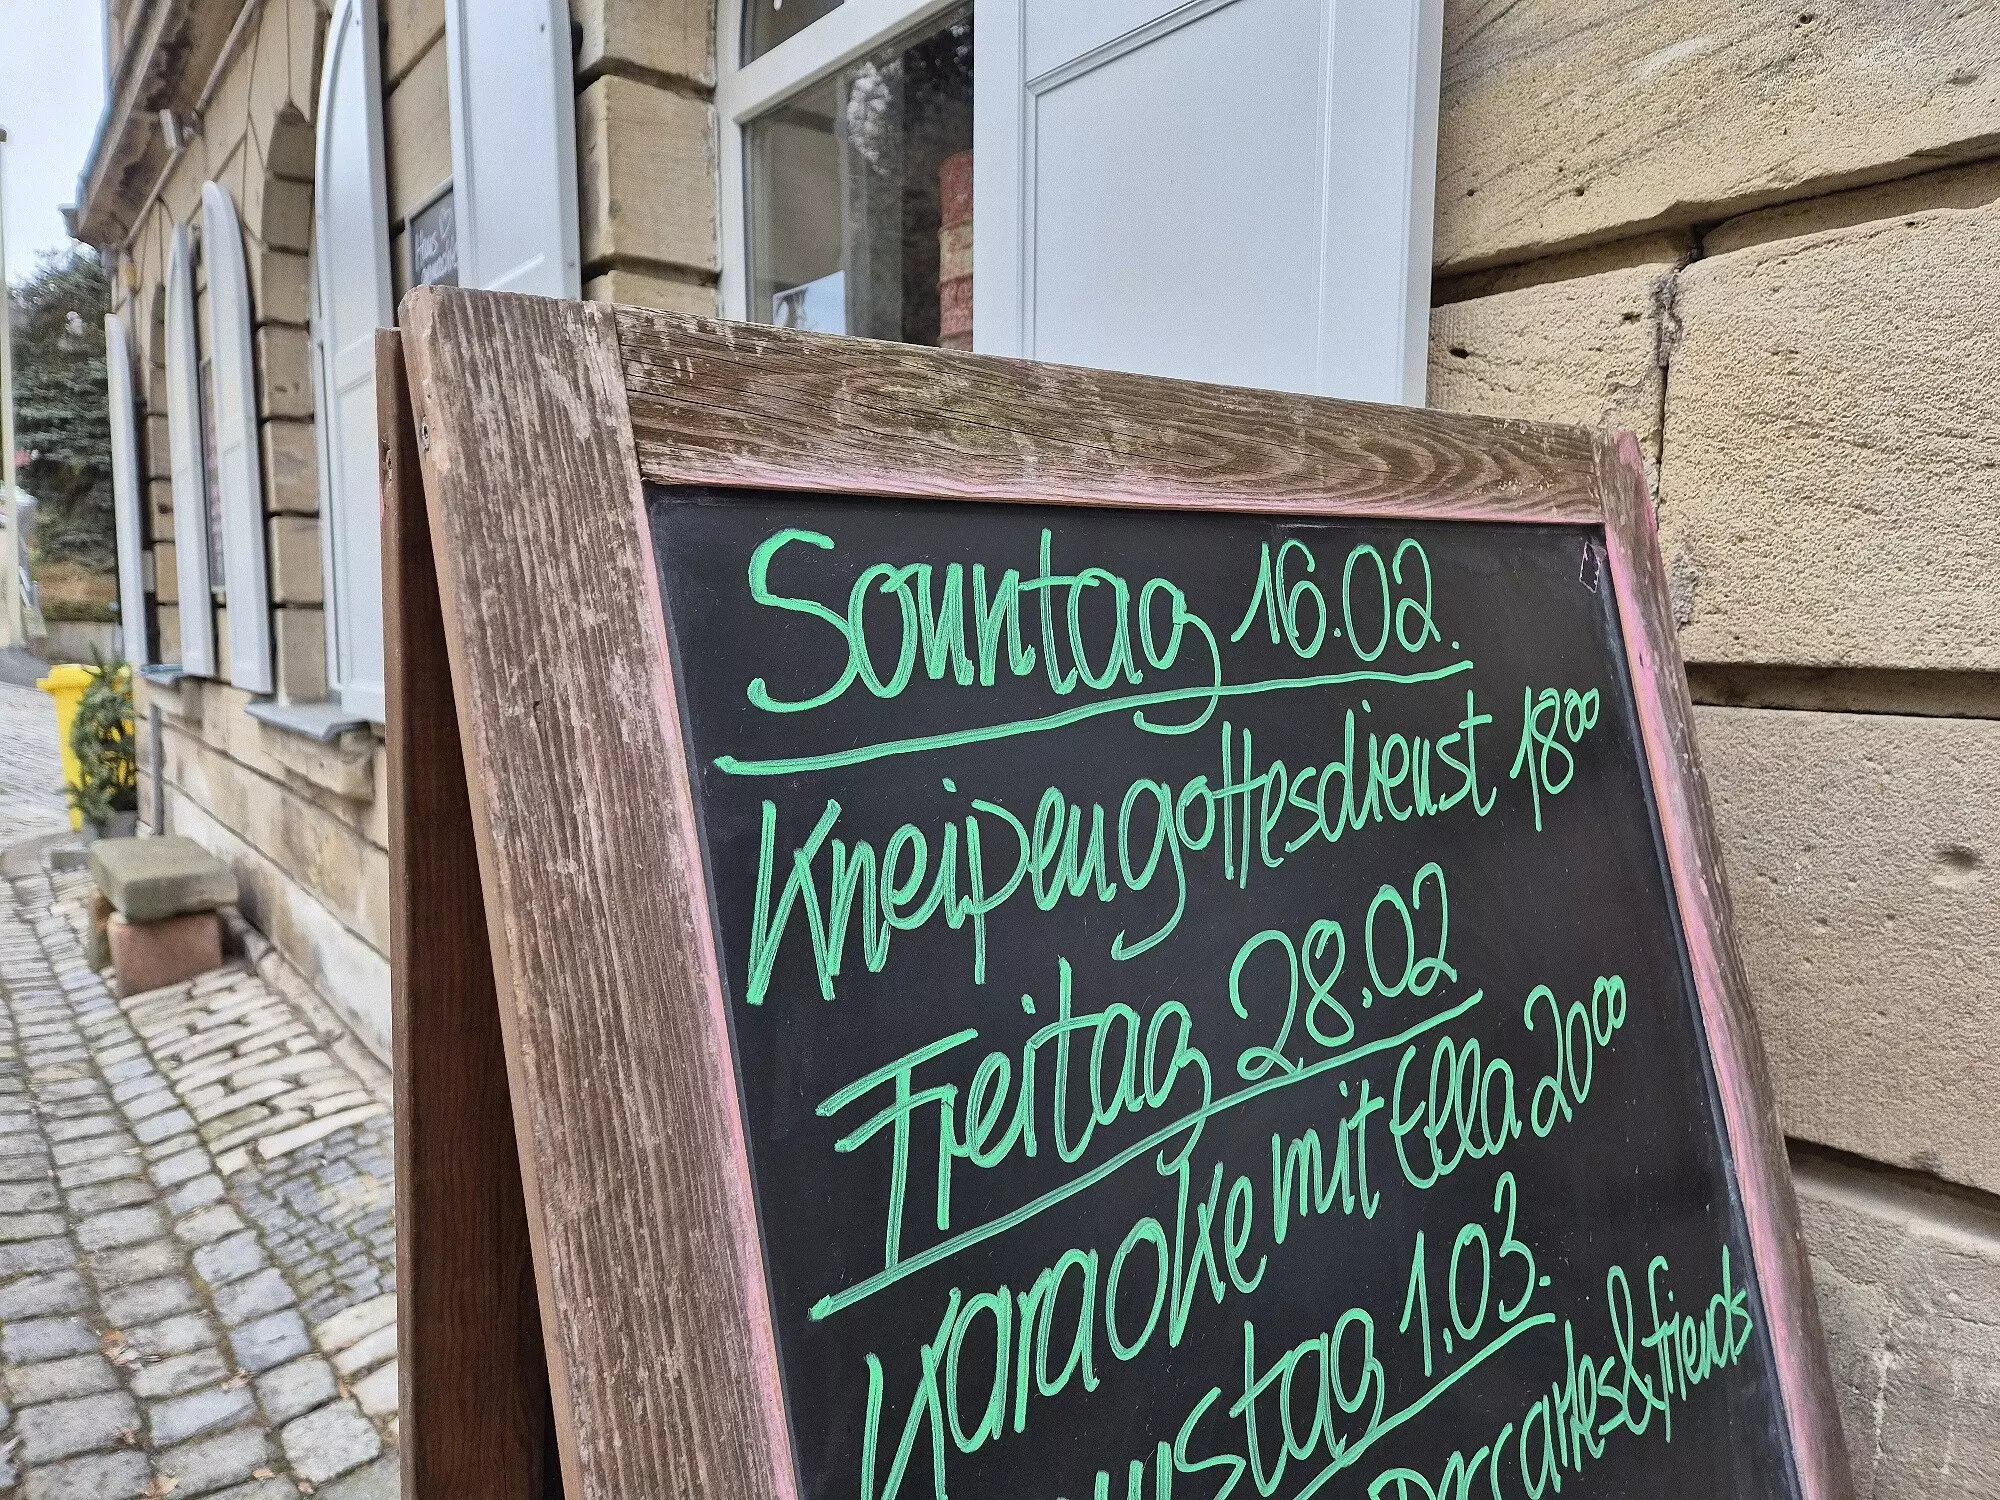 Haus
Sonntag 16.02.
Kneipengottesdienst 18⁰⁰
Freitag 28.02
Karaoke mit Ella 20⁰⁰
1.03.
&friends